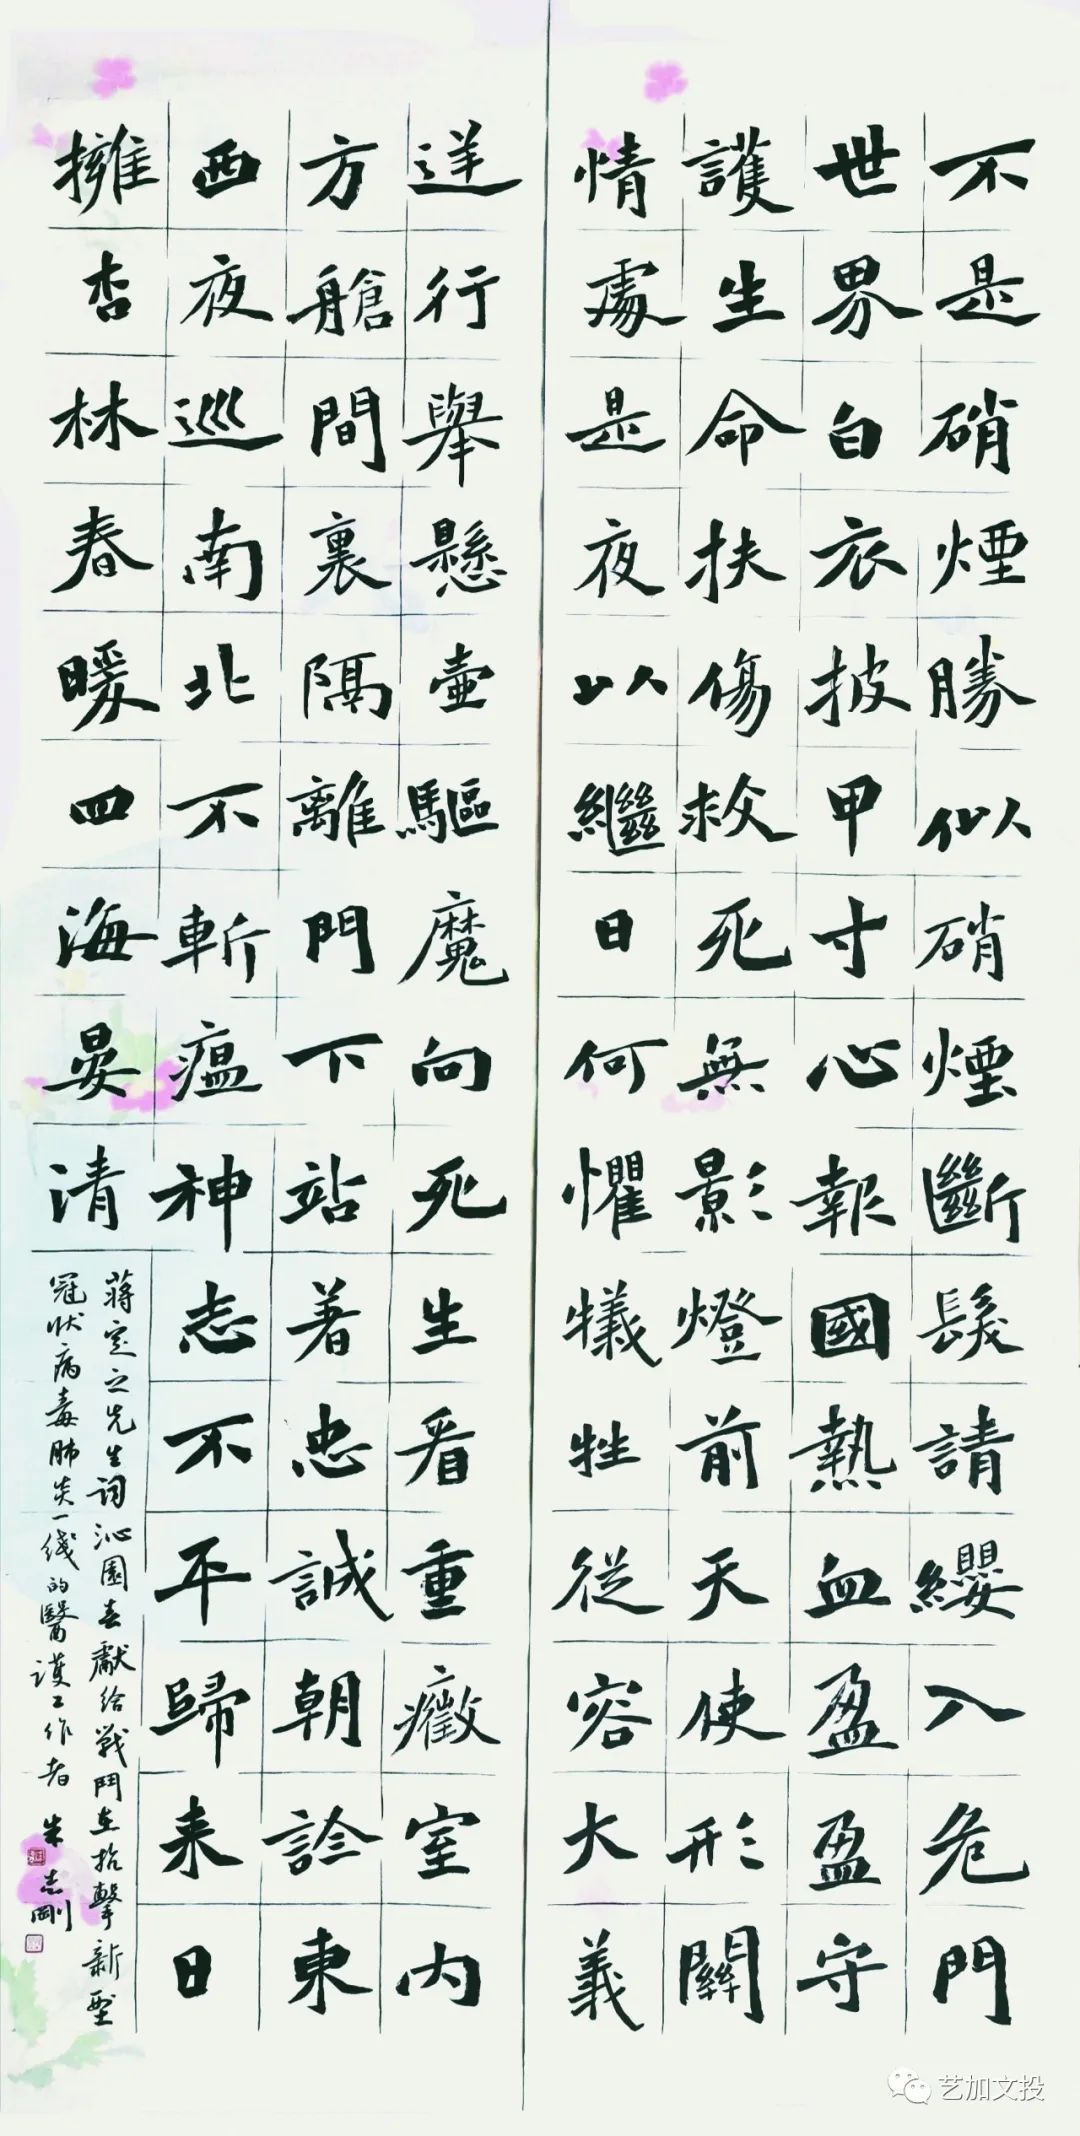 不是硝煙勝似硝煙斷髮請纓入危門
世界白衣披甲寸心報國熱血盈盈守
護生命扶傷救死無影燈前天使形關
情處是夜以繼日何懼犧牲從容大義
逆行舉懸壺驅魔向死生看重癥室內
方艙間裏隔離門下站著忠誠朝診東
西夜巡南北不斬瘟神志不平歸来日
擁杏林春暖四海晏清
蔣定之先生詞沁園春獻給戰鬥在抗擊新型
冠狀病毒肺炎一綫的醫護工作者 朱志剛
艺加文投